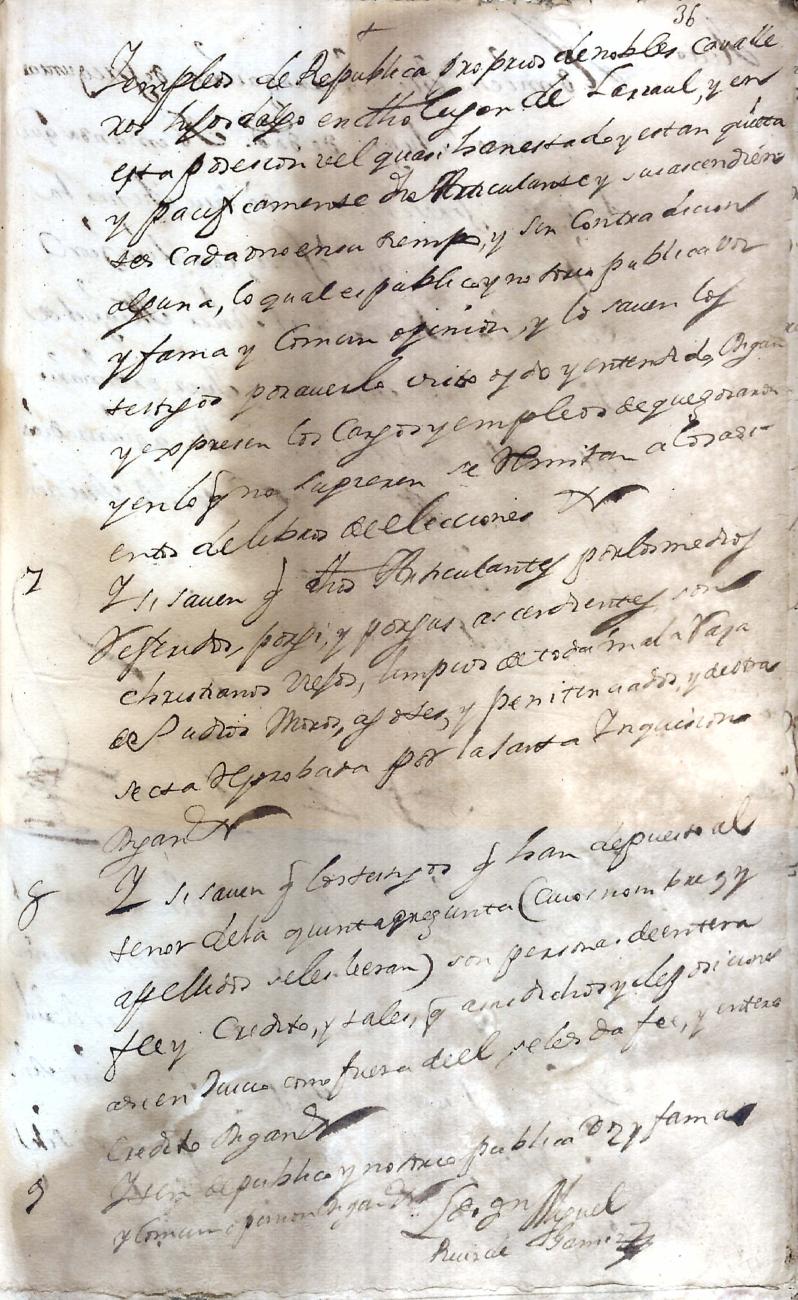 36
+
Y empleos de Republica proprios de nobles cavalle
ros hijosdalgo en dho lugar de Larraul, y en
esta posesion vel quasi han estado y estan quieta
y pacificamente dho Articulante y sus ascendien
tes cada uno en su tiempo, y sin Contradicion
alguna, lo qual es publico y notorio publica voz
y fama y Comun opinion, y lo saven los
testigos por averlo visto oydo y entendido, Digan
y expresen los Cargos y empleos de que gozaron
y en lo q no supieren se Remitan a los asi
entos de libros de elecciones
7 Y si saven q dhos Articulantes por los medios
Referidos, por si, y por sus ascendientes son
christianos viejos, limpios de toda mala Raza
de Judios Moros, agotes, y penitenciados, y de otra
secta Reprobada por la santa Inquisicion
Digan
8 Y si saven q los testigos q han depuesto al
tenor de la quinta pregunta (Cuios nombres y
apellidos se les leeran) son personas de entera
fee y Credito, y tales, q a sus dichos y deposiciones
asi en Juicio como fuera de el se les da fee, y entero
Credito Digan
9 Yten de publico y notorio publica voz y fama
y Comun opinion Digan
Miguel